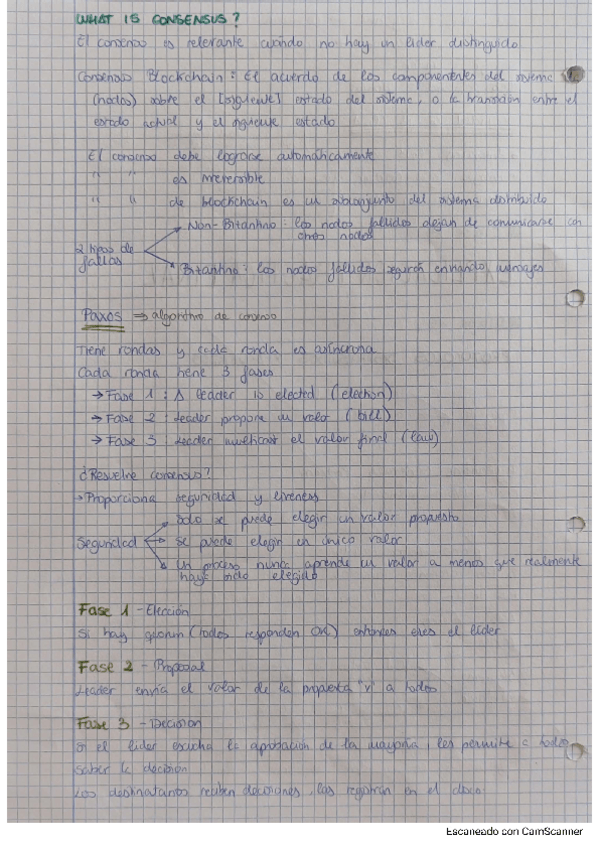 WHAT IS CONSENSUS?
El consenso es relevante cuando no hay un líder distinguido
Consenso Blockchain: El acuerdo de los componentes del sistema
(nodos) sobre el [siguiente] estado del sistema, o la transición entre el
estado actual y el siguiente estado
El consenso debe lograrse automáticamente
" " es irreversible
" " de blockchain es un subconjunto del sistema distribuido
Non-Bizantino: los nodos fallidos dejan de comunicarse con
otros nodos
2 tipos de
fallas
Bizantino: los nodos fallidos seguirán enviando mensajes
Paxos ⇒ algoritmo de consenso
Tiene rondas y cada ronda es asíncrona
Cada ronda tiene 3 fases
→ Fase 1: A leader is elected (election)
→ Fase 2: Leader propone un valor (bill)
→ Fase 3: Leader multicast el valor final (law)
¿Resuelve consenso?
→ Proporciona seguridad y liveness
Solo se puede elegir un valor propuesto
Seguridad
se puede elegir un único valor
Un proceso nunca aprende un valor a menos que realmente
haya sido elegido
Fase 1 - Elección
Si hay quorum (todos responden OK) entonces eres el líder
Fase 2 - Proposal
Leader envía el valor de la propuesta "v" a todos
Fase 3 - Decision
Si el líder escucha la aprobación de la mayoría, les permite a todos
saber la decisión
Los destinatarios reciben decisiones, las registran en el disco
Escaneado con CamScanner